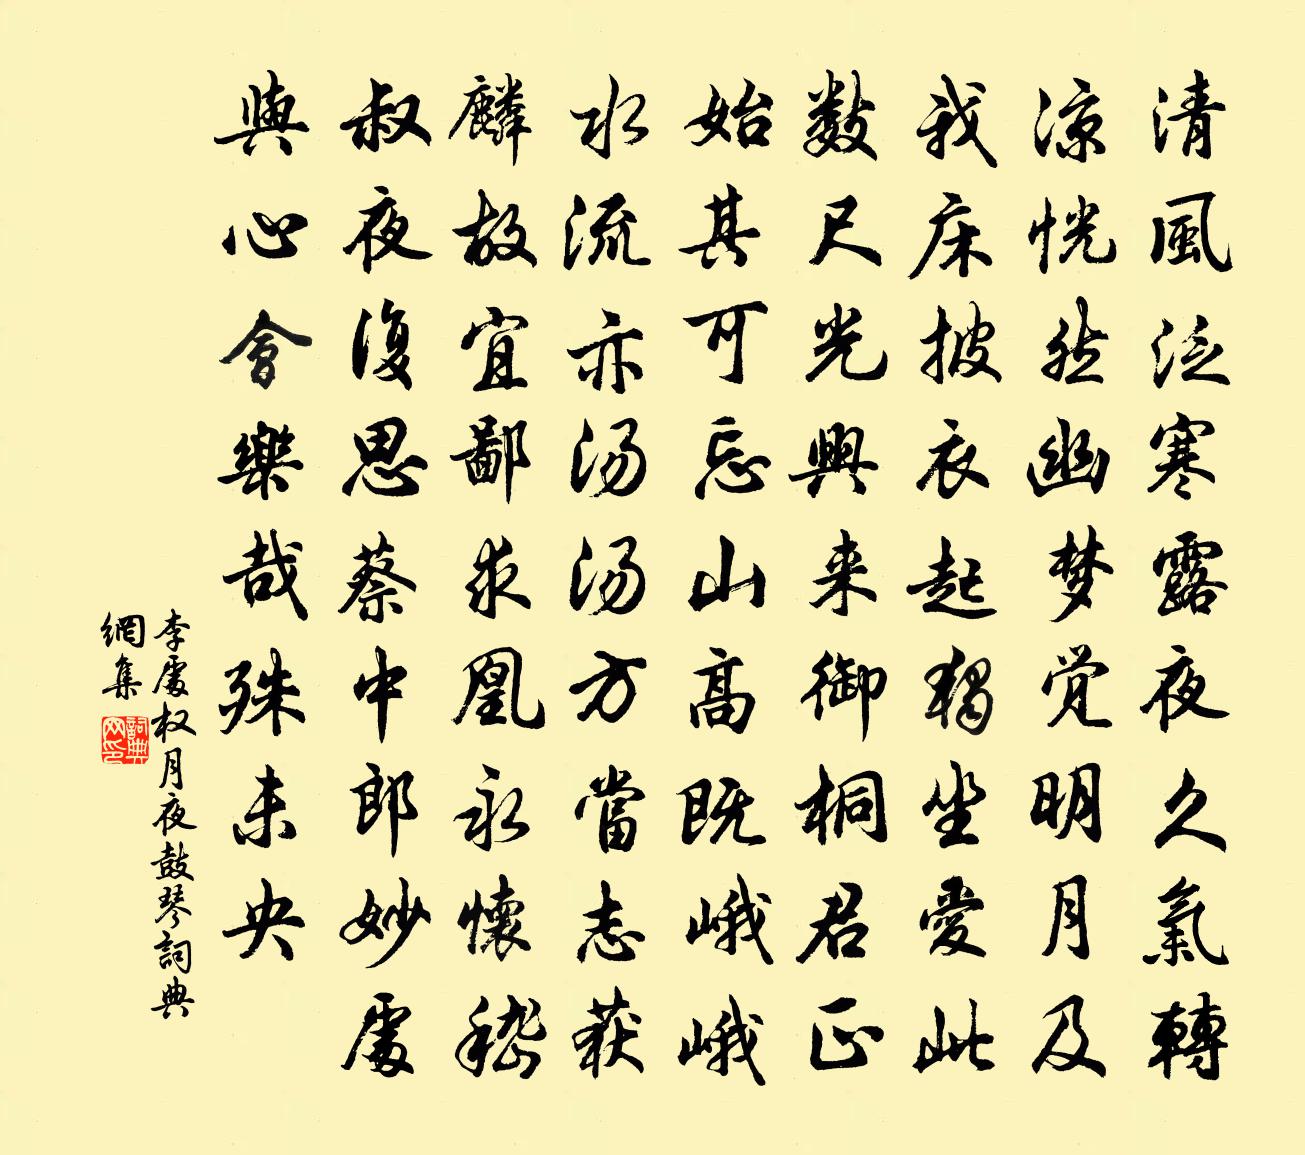 清風泛寒露夜久氣轉
凉恍然幽梦觉明月及
我床披衣起獨坐愛此
数尺光興来御桐君正
始其可忘山高既峨峨
水流亦汤汤方當志获
麟故宜鄙求凰永懷嵇
叔夜復思蔡中郎妙處
與心會樂哉殊未央
李處权月夜鼓琴詞典
網集
詞典
网印